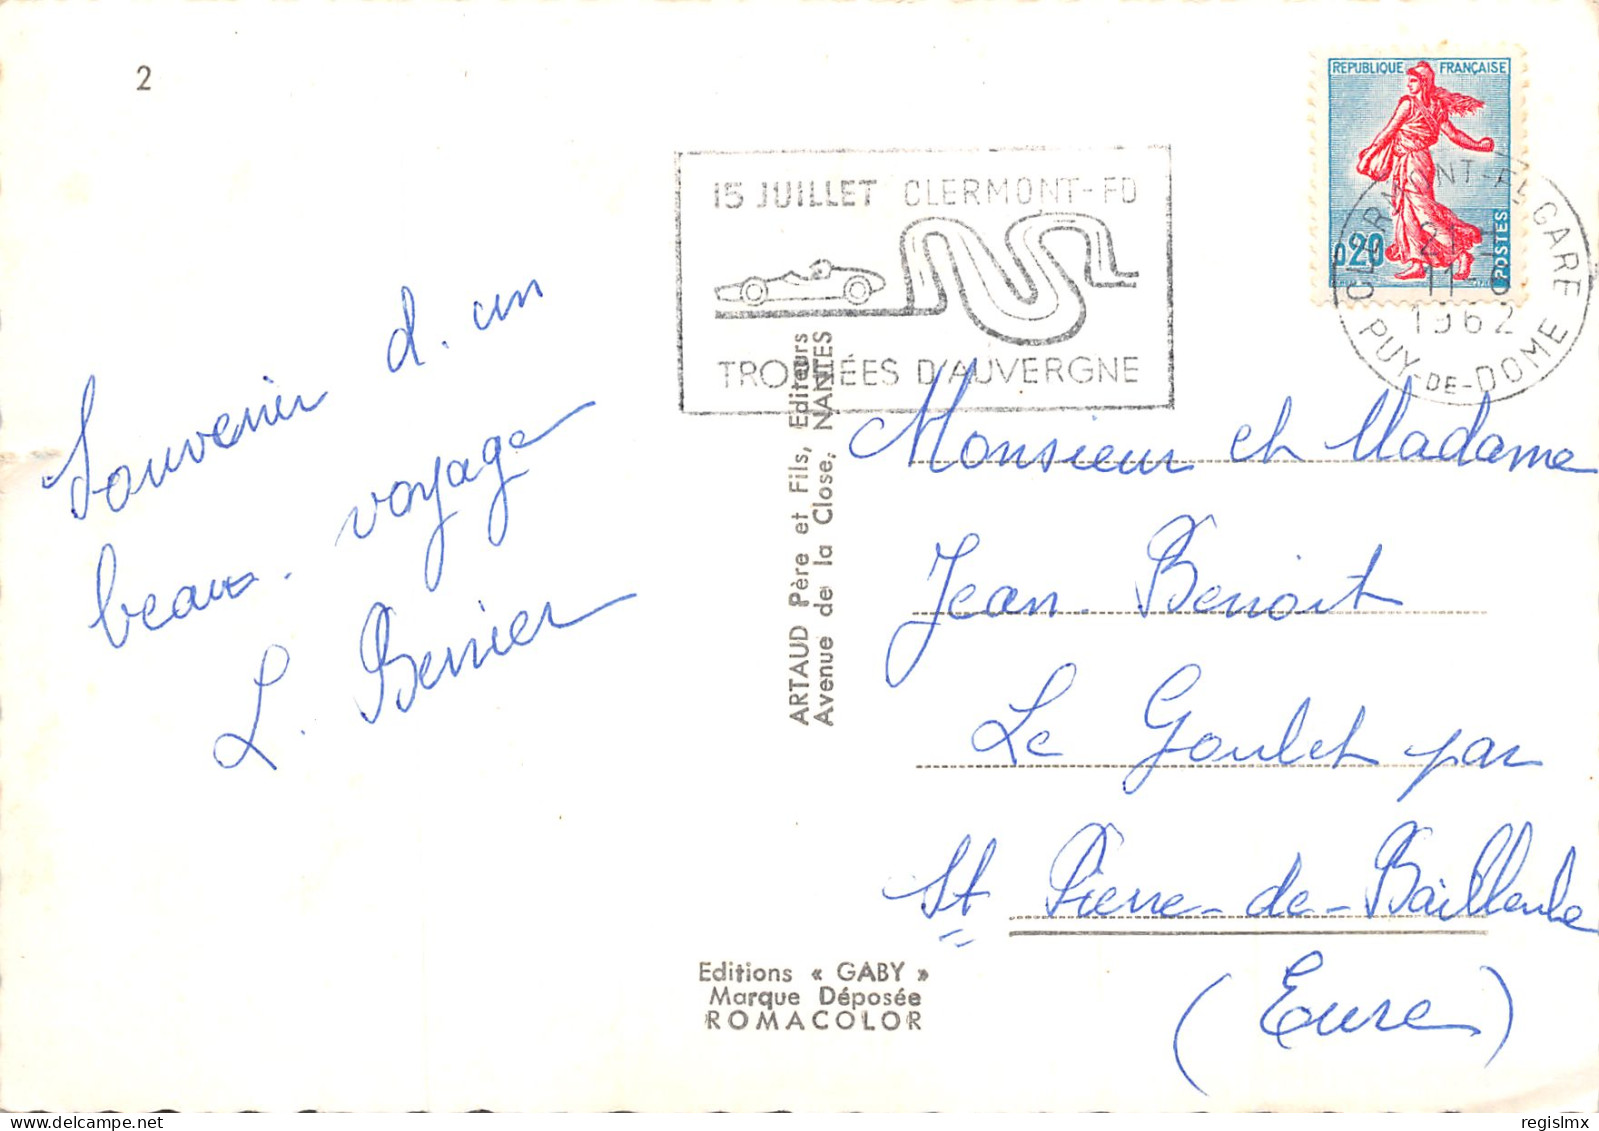 2
REPUBLIQUE FRANÇAISE
0,20
POSTES
CLERMONT-FD GARE
1962
PUY-DE-DOME
15 JUILLET CLERMONT-FD
TROPHÉES D'AUVERGNE
Souvenir d'un
beau voyage
L. Bernier
ARTAUD Père et Fils, Editeurs
Avenue de la Close, NANTES
Monsieur et Madame
Jean Benoit
Le Goulet par
St Pierre-de-Bailleule
(Eure)
Editions « GABY »
Marque Déposée
ROMACOLOR
regislmx